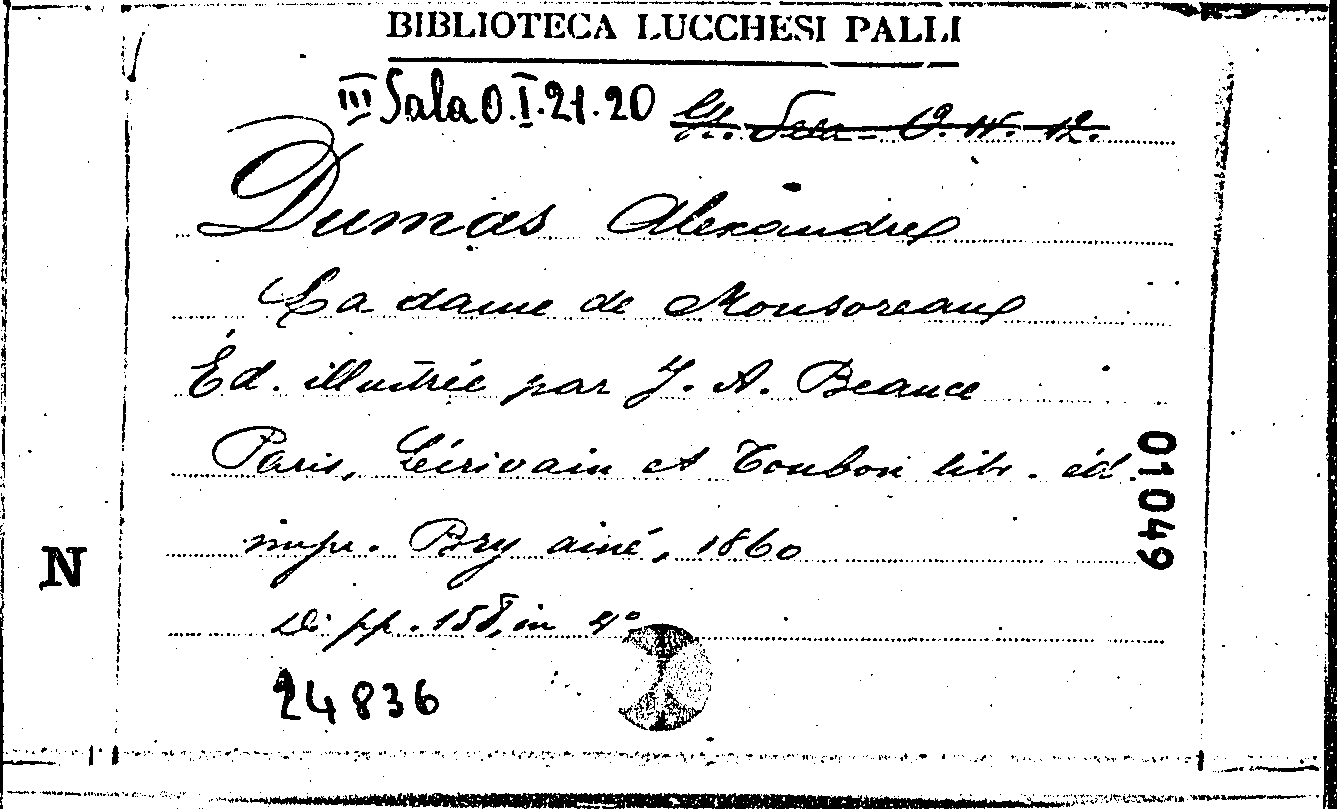 BIBLIOTECA LUCCHESI PALLI
III Sala O.I.21.20
Dumas Alexandre
La dame de Monsoreau
Éd. illustrée par J. A. Beauce
Paris, Lécrivain et Toubon libr. éd.
impr. Bry ainé, 1860
Di pp. 158, in 4°
24836
01049
N